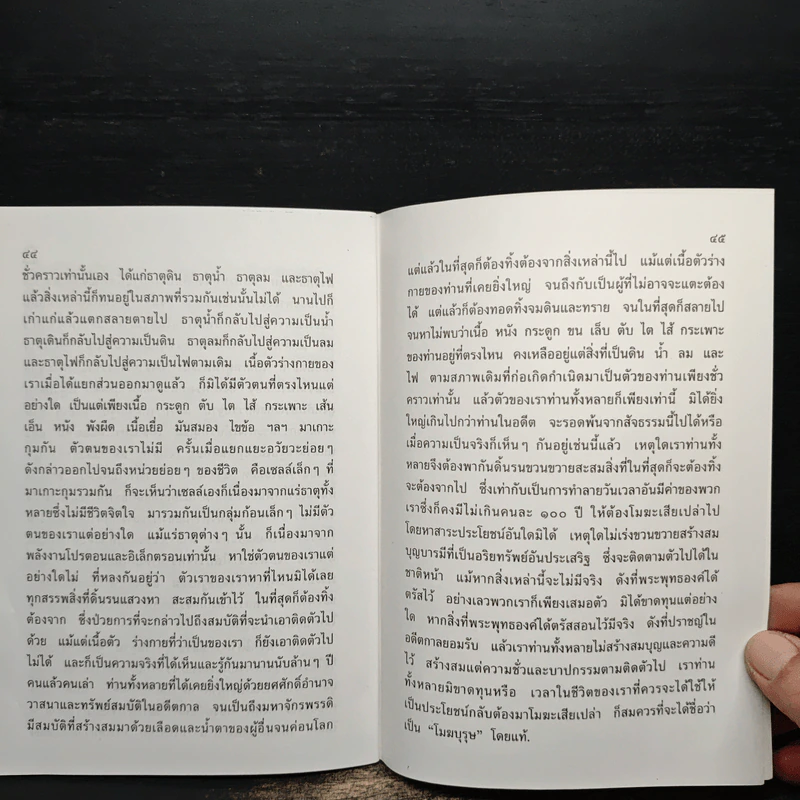 ๔๔
ชั่วคราวเท่านั้นเอง ได้แก่ธาตุดิน ธาตุน้ำ ธาตุลม และธาตุไฟ
แล้วสิ่งเหล่านี้ก็ทนอยู่ในสภาพที่รวมกันเช่นนั้นไม่ได้ นานไปก็
เก่าแก่แล้วแตกสลายตายไป ธาตุน้ำก็กลับไปสู่ความเป็นน้ำ
ธาตุเดินก็กลับไปสู่ความเป็นดิน ธาตุลมก็กลับไปสู่ความเป็นลม
และธาตุไฟก็กลับไปสู่ความเป็นไฟตามเดิม เนื้อตัวร่างกายของ
เราเมื่อได้แยกส่วนออกมาดูแล้ว ก็มิได้มีตัวตนที่ตรงไหนแต่
อย่างใด เป็นแต่เพียงเนื้อ กระดูก ตับ ไต ไส้ กระเพาะ เส้น
เอ็น หนัง พังผืด เนื้อเยื่อ มันสมอง ไขข้อ ฯลฯ มาเกาะ
กุมกัน ตัวตนของเราไม่มี ครั้นเมื่อแยกแยะอวัยวะย่อยๆ
ดังกล่าวออกไปจนถึงหน่วยย่อยๆ ของชีวิต คือเซลล์เล็กๆ ที่
มาเกาะกุมรวมกัน ก็จะเห็นว่าเซลล์เองก็เนื่องมาจากแร่ธาตุทั้ง
หลายซึ่งไม่มีชีวิตจิตใจ มารวมกันเป็นกลุ่มก้อนเล็กๆ ไม่มีตัว
ตนของเราแต่อย่างใด แม้แร่ธาตุต่างๆ นั้น ก็เนื่องมาจาก
พลังงานโปรตอนและอิเล็กตรอนเท่านั้น หาใช่ตัวตนของเราแต่
อย่างใดไม่ ที่หลงกันอยู่ว่า ตัวเราของเราหาที่ไหนมิได้เลย
ทุกสรรพสิ่งที่ดิ้นรนแสวงหา สะสมกันเข้าไว้ ในที่สุดก็ต้องทิ้ง
ต้องจาก ซึ่งป่วยการที่จะกล่าวไปถึงสมบัติที่จะนำเอาติดตัวไป
ด้วย แม้แต่เนื้อตัว ร่างกายที่ว่าเป็นของเรา ก็ยังเอาติดตัวไป
ไม่ได้ และก็เป็นความจริงที่ได้เห็นและรู้กันมานานนับล้านๆ ปี
คนแล้วคนเล่า ท่านทั้งหลายที่ได้เคยยิ่งใหญ่ด้วยยศศักดิ์อำนาจ
วาสนาและทรัพย์สมบัติในอดีตกาล จนเป็นถึงมหาจักรพรรดิ
มีสมบัติที่สร้างสมมาด้วยเลือดและน้ำตาของผู้อื่นจนค่อนโลก
๔๕
แต่แล้วในที่สุดก็ต้องทิ้งต้องจากสิ่งเหล่านี้ไป แม้แต่เนื้อตัวร่าง
กายของท่านที่เคยยิ่งใหญ่ จนถึงกับเป็นผู้ที่ไม่อาจจะแตะต้อง
ได้ แต่แล้วก็ต้องทอดทิ้งจมดินและทราย จนในที่สุดก็สลายไป
จนหาไม่พบว่าเนื้อ หนัง กระดูก ขน เล็บ ตับ ไต ไส้ กระเพาะ
ของท่านอยู่ที่ตรงไหน คงเหลืออยู่แต่สิ่งที่เป็นดิน น้ำ ลม และ
ไฟ ตามสภาพเดิมที่ก่อเกิดกำเนิดมาเป็นตัวของท่านเพียงชั่ว
คราวเท่านั้น แล้วตัวของเราท่านทั้งหลายก็เพียงเท่านี้ มิได้ยิ่ง
ใหญ่เกินไปกว่าท่านในอดีต จะรอดพ้นจากสัจธรรมนี้ไปได้หรือ
เมื่อความเป็นจริงก็เห็นๆ กันอยู่เช่นนี้แล้ว เหตุใดเราท่านทั้ง
หลายจึงต้องพากันดิ้นรนขวนขวายสะสมสิ่งที่ในที่สุดก็จะต้องทิ้ง
จะต้องจากไป ซึ่งเท่ากับเป็นการทำลายวันเวลาอันมีค่าของพวก
เราซึ่งก็คงมีไม่เกินคนละ ๑๐๐ ปี ให้ต้องโมฆะเสียเปล่าไป
โดยหาสาระประโยชน์อันใดมิได้ เหตุใดไม่เร่งขวนขวายสร้างสม
บุญบารมีที่เป็นอริยทรัพย์อันประเสริฐ ซึ่งจะติดตามตัวไปได้ใน
ชาติหน้า แม้หากสิ่งเหล่านี้จะไม่มีจริง ดังที่พระพุทธองค์ได้
ตรัสไว้ อย่างเลวพวกเราก็เพียงเสมอตัว มิได้ขาดทุนแต่อย่าง
ใด หากสิ่งที่พระพุทธองค์ได้ตรัสสอนไว้มีจริง ดังที่ปราชญ์ใน
อดีตกาลยอมรับ แล้วเราท่านทั้งหลายไม่สร้างสมบุญและความดี
ไว้ สร้างสมแต่ความชั่วและบาปกรรมตามติดตัวไป เราท่าน
ทั้งหลายมิขาดทุนหรือ เวลาในชีวิตของเราที่ควรจะได้ใช้ให้
เป็นประโยชน์กลับต้องมาโมฆะเสียเปล่า ก็สมควรที่จะได้ชื่อว่า
เป็น “โมฆบุรุษ” โดยแท้.